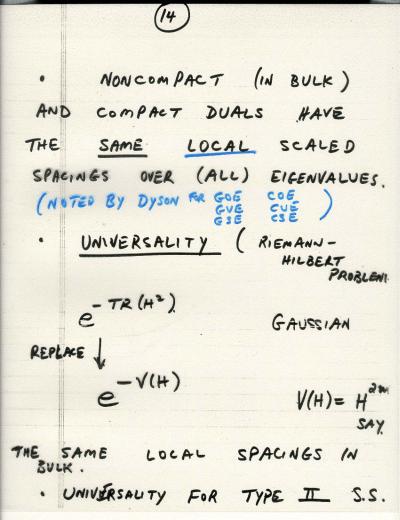 14
• NONCOMPACT (IN BULK)
AND COMPACT DUALS HAVE
THE SAME LOCAL SCALED
SPACINGS OVER (ALL) EIGENVALUES.
(NOTED BY DYSON FOR GOE COE
GUE CUE
GSE CSE)
• UNIVERSALITY (RIEMANN-
HILBERT
PROBLEM)
e^{-TR(H²)} GAUSSIAN
REPLACE ↓
e^{-V(H)} V(H) = H^{2m}
SAY.
THE SAME LOCAL SPACINGS IN
BULK.
• UNIVERSALITY FOR TYPE II S.S.